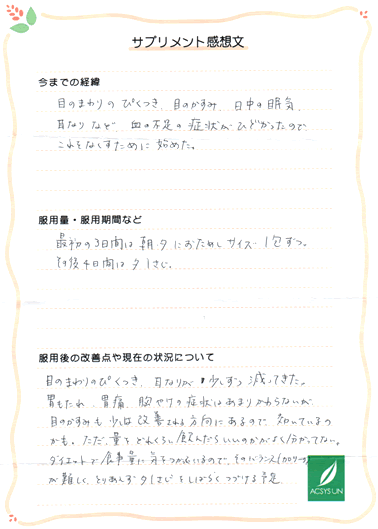 サプリメント感想文
今までの経緯
目のまわりのぴくつき、目のかすみ、日中の眠気、
耳なりなど、血の不足の症状がひどかったので、
これをなくすために始めた。
服用量・服用期間など
最初の3日間は朝・夕におためしサイズ1包ずつ。
その後4日間は夕1さじ。
服用後の改善点や現在の状況について
目のまわりのぴくつき、耳なりが少しずつ減ってきた。
胃もたれ、胃痛、胸やけの症状はあまりかわらないが、
目のかすみも少しは改善される方向にあるので、効いているの
かも。ただ、量をどれくらい飲んだらいいのかがよく分かってない。
ダイエットで食事量に気をつかっているので、そのバランス(カロリー
が難しく、とりあえず夕1さじをしばらくつづける予定
ACSYSUN